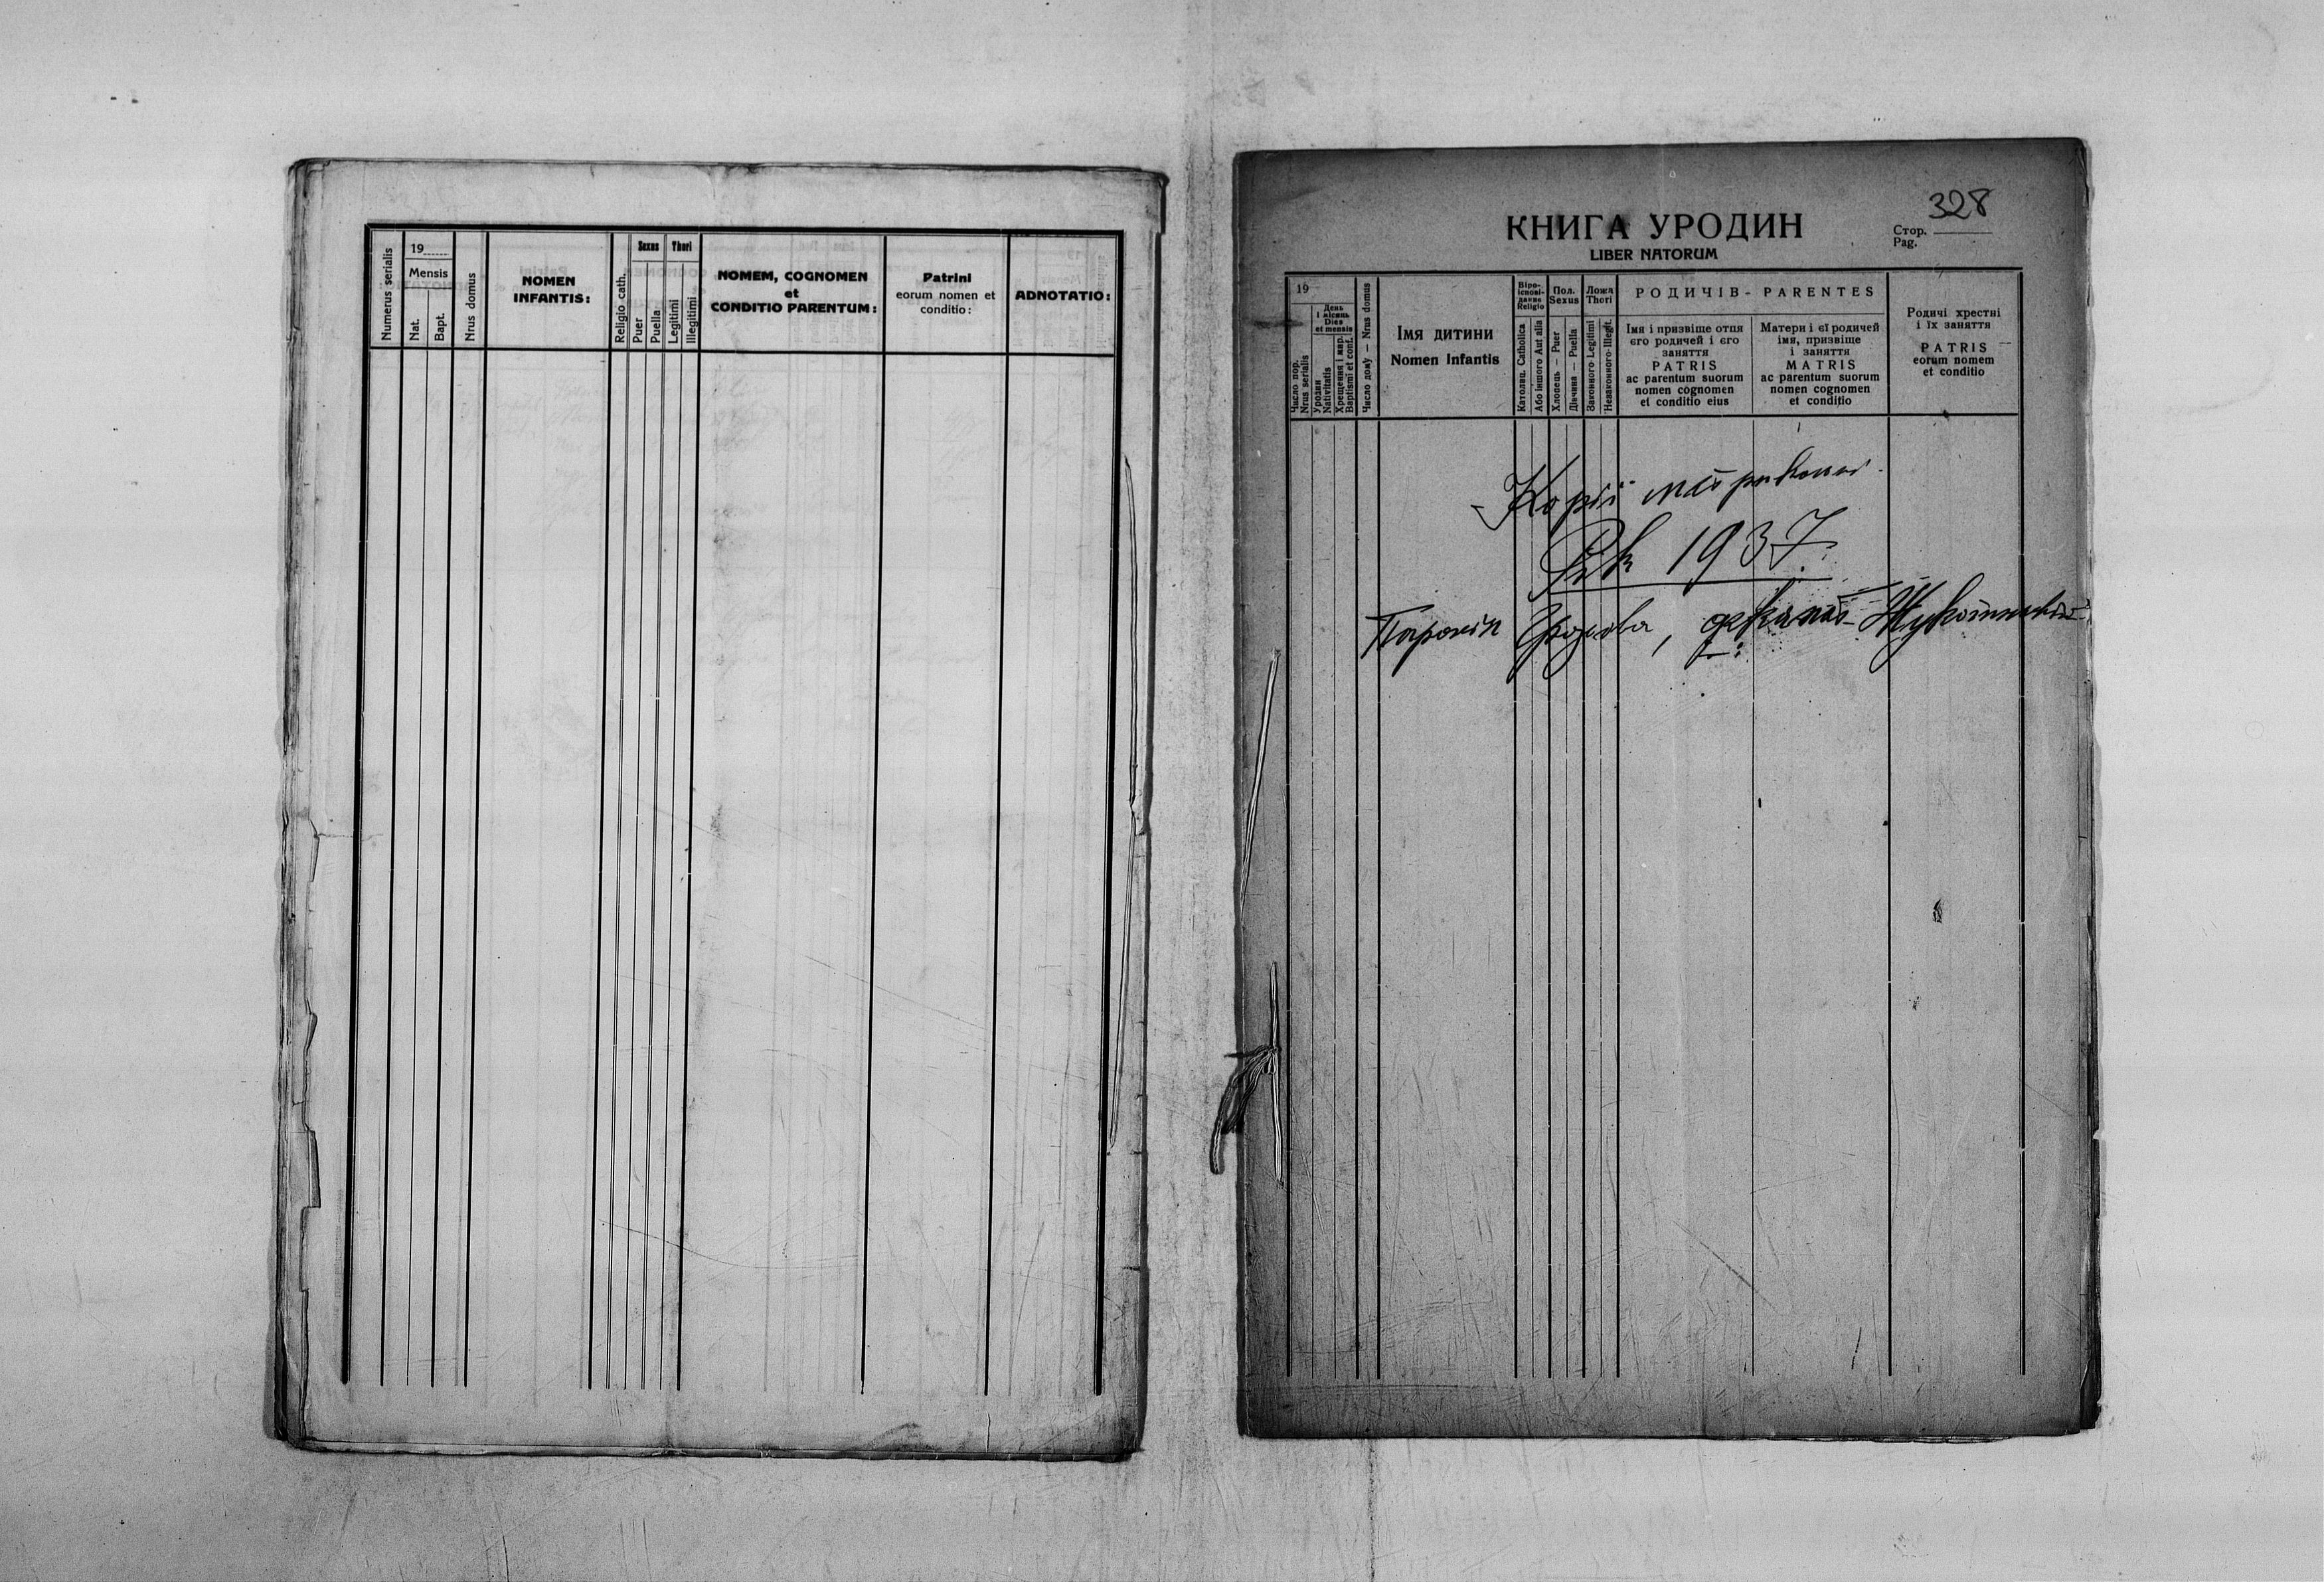 Numerus serialis
19
Mensis
Nat.
Bapt.
Nrus domus
NOMEN
INFANTIS:
Religio cath.
Sexus
Puer
Puella
Thori
Legitimi
Illegitimi
NOMEM, COGNOMEN
et
CONDITIO PARENTUM:
Patrini
eorum nomen et
conditio:
ADNOTATIO:
328
КНИГА УРОДИН
LIBER NATORUM
Стор.
Pag.
19
Число пор.
Nrus serialis
День
і місяць
Dies
et mensis
Уродин
Nativitatis
Хрещення і мир.
Baptismi et conf.
Число дому — Nrus domus
Імя дитини
Nomen Infantis
Віро-
ісповi-
данне
Religio
Католиц. Catholica
Або іншого Aut alia
Пол.
Sexus
Хлопець — Puer
Дівчина — Puella
Ложа
Thori
Законного-Legitimi
Незаконного-Illegit.
РОДИЧІВ - PARENTES
Імя і призвіще отця
єго родичей і єго
заняття
PATRIS
ac parentum suorum
nomen cognomen
et conditio eius
Матери і єї родичей
імя, призвіще
і заняття
MATRIS
ac parentum suorum
nomen cognomen
et conditio
Родичі хрестні
і їх заняття
PATRIS
eorum nomem
et conditio
Копії
Рік 1937.
Парохія деканат Жукотинський